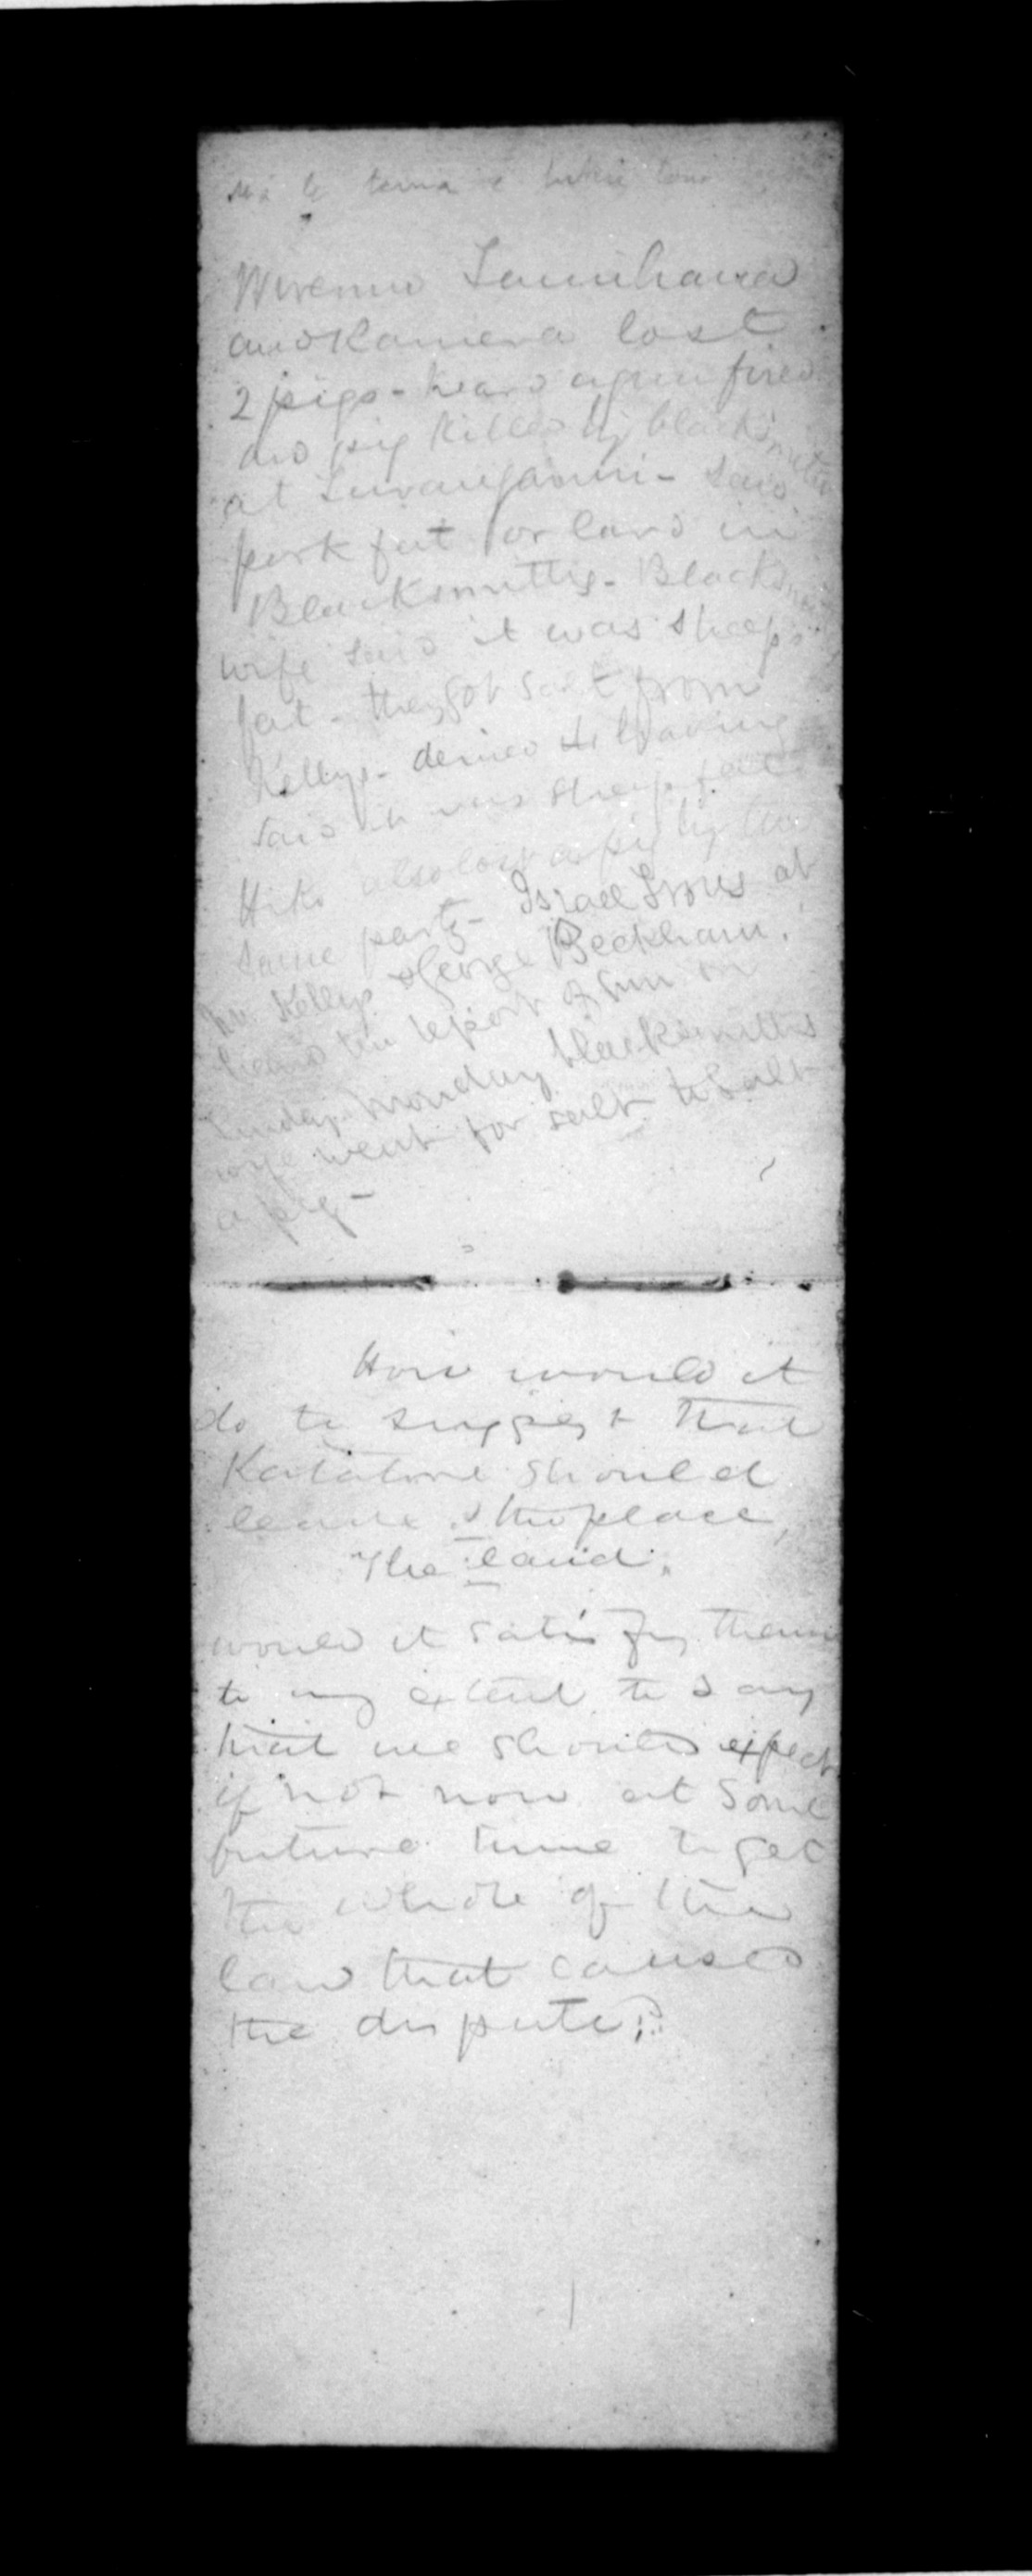 Wiremu Tamihana
and Kamera lost
2 pigs - heard a gun fired
and pig killed by blacksmith
at - saw
pork fat or lard in
Blacksmiths - Blacksmiths
wife said it was sheeps
fat - they got salt from
Kellys - denied it having
said it was sheeps fat
Hiki also lost a pig by the
same party - Israel at
Mr Kellys & George Beckham.
heard the report of gun on
Sunday. Monday blacksmiths
wife went for salt to salt
a pig -
How would it
do to suggest that
Katatore should
leave the place
The land.
would it satisfy them
to any extent to say
that we should expect
if not now at some
future time to get
the whole of the
land that caused
the dispute?